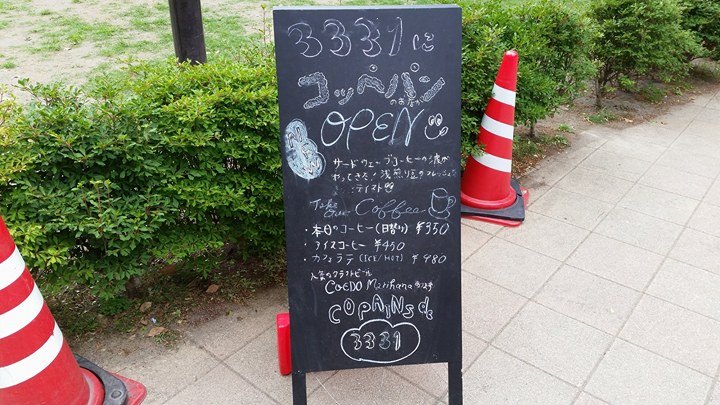 3331に
コッペパン
のお店が
OPEN
サードウェーブコーヒーの波が
やってきた！浅煎り豆のフレッシュな
テイスト
Take Out Coffee
・本日のコーヒー（日替り）¥350
・アイスコーヒー ¥450
・カフェラテ（ICE/HOT）¥480
人気のクラフトビール
COEDO Marihana
COPAINS de
3331